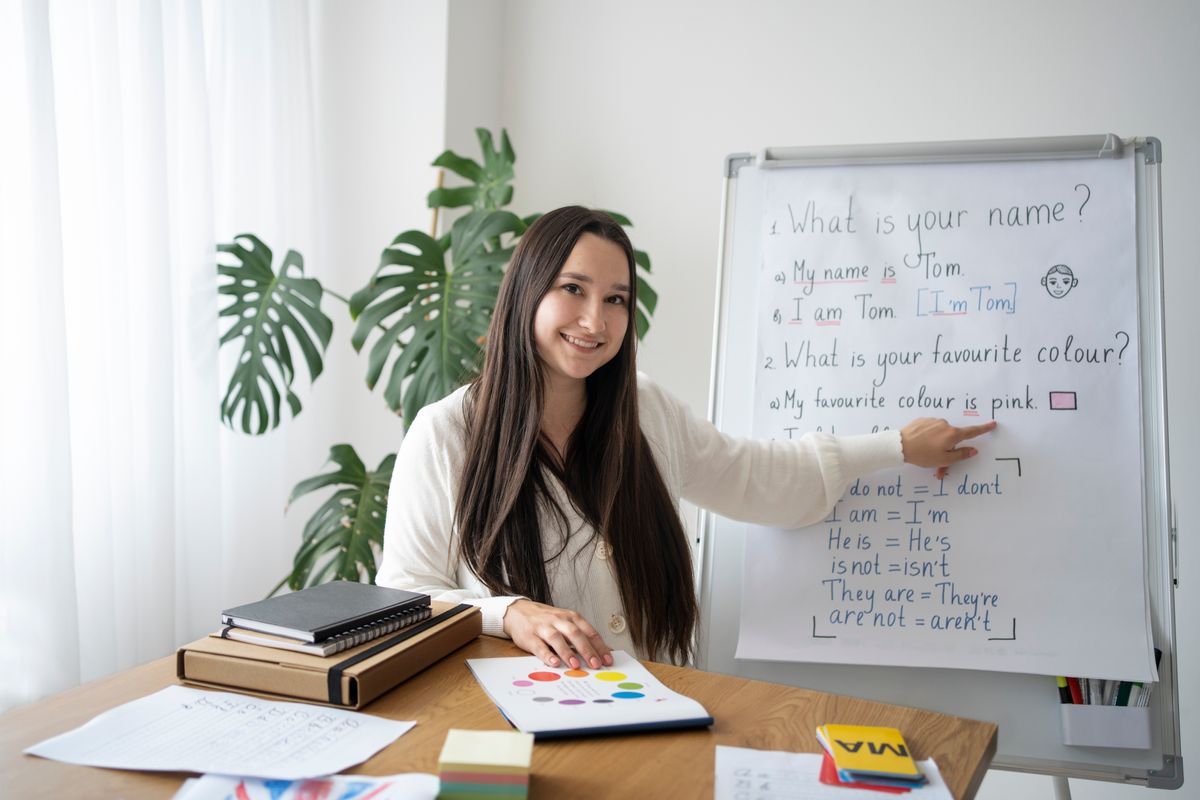 1. What is your name?
a) My name is Tom.
b) I am Tom. [I'm Tom]
2. What is your favourite colour?
a) My favourite colour is pink.
I do not = I don't
I am = I'm
He is = He's
is not = isn't
They are = They're
are not = aren't
MA